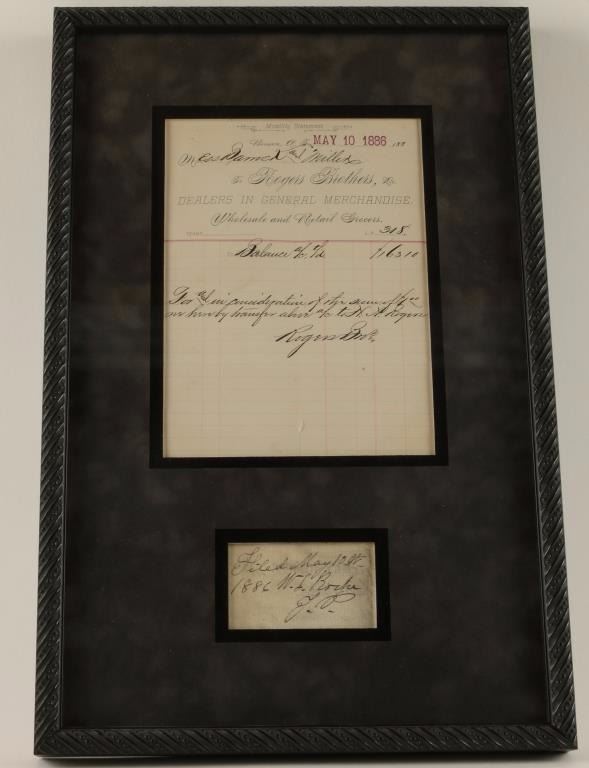 Monthly Statement
MAY 10 1886 188
Mess & Miller
To Rogers Brothers, Dr.
DEALERS IN GENERAL MERCHANDISE,
Wholesale and Retail Grocers.
318
Balance
For & in consideration of the sum of
we hereby transfer above to H. A. Rogers
Rogers Bros
Filed May 12th
1886 W. F.
J. P.